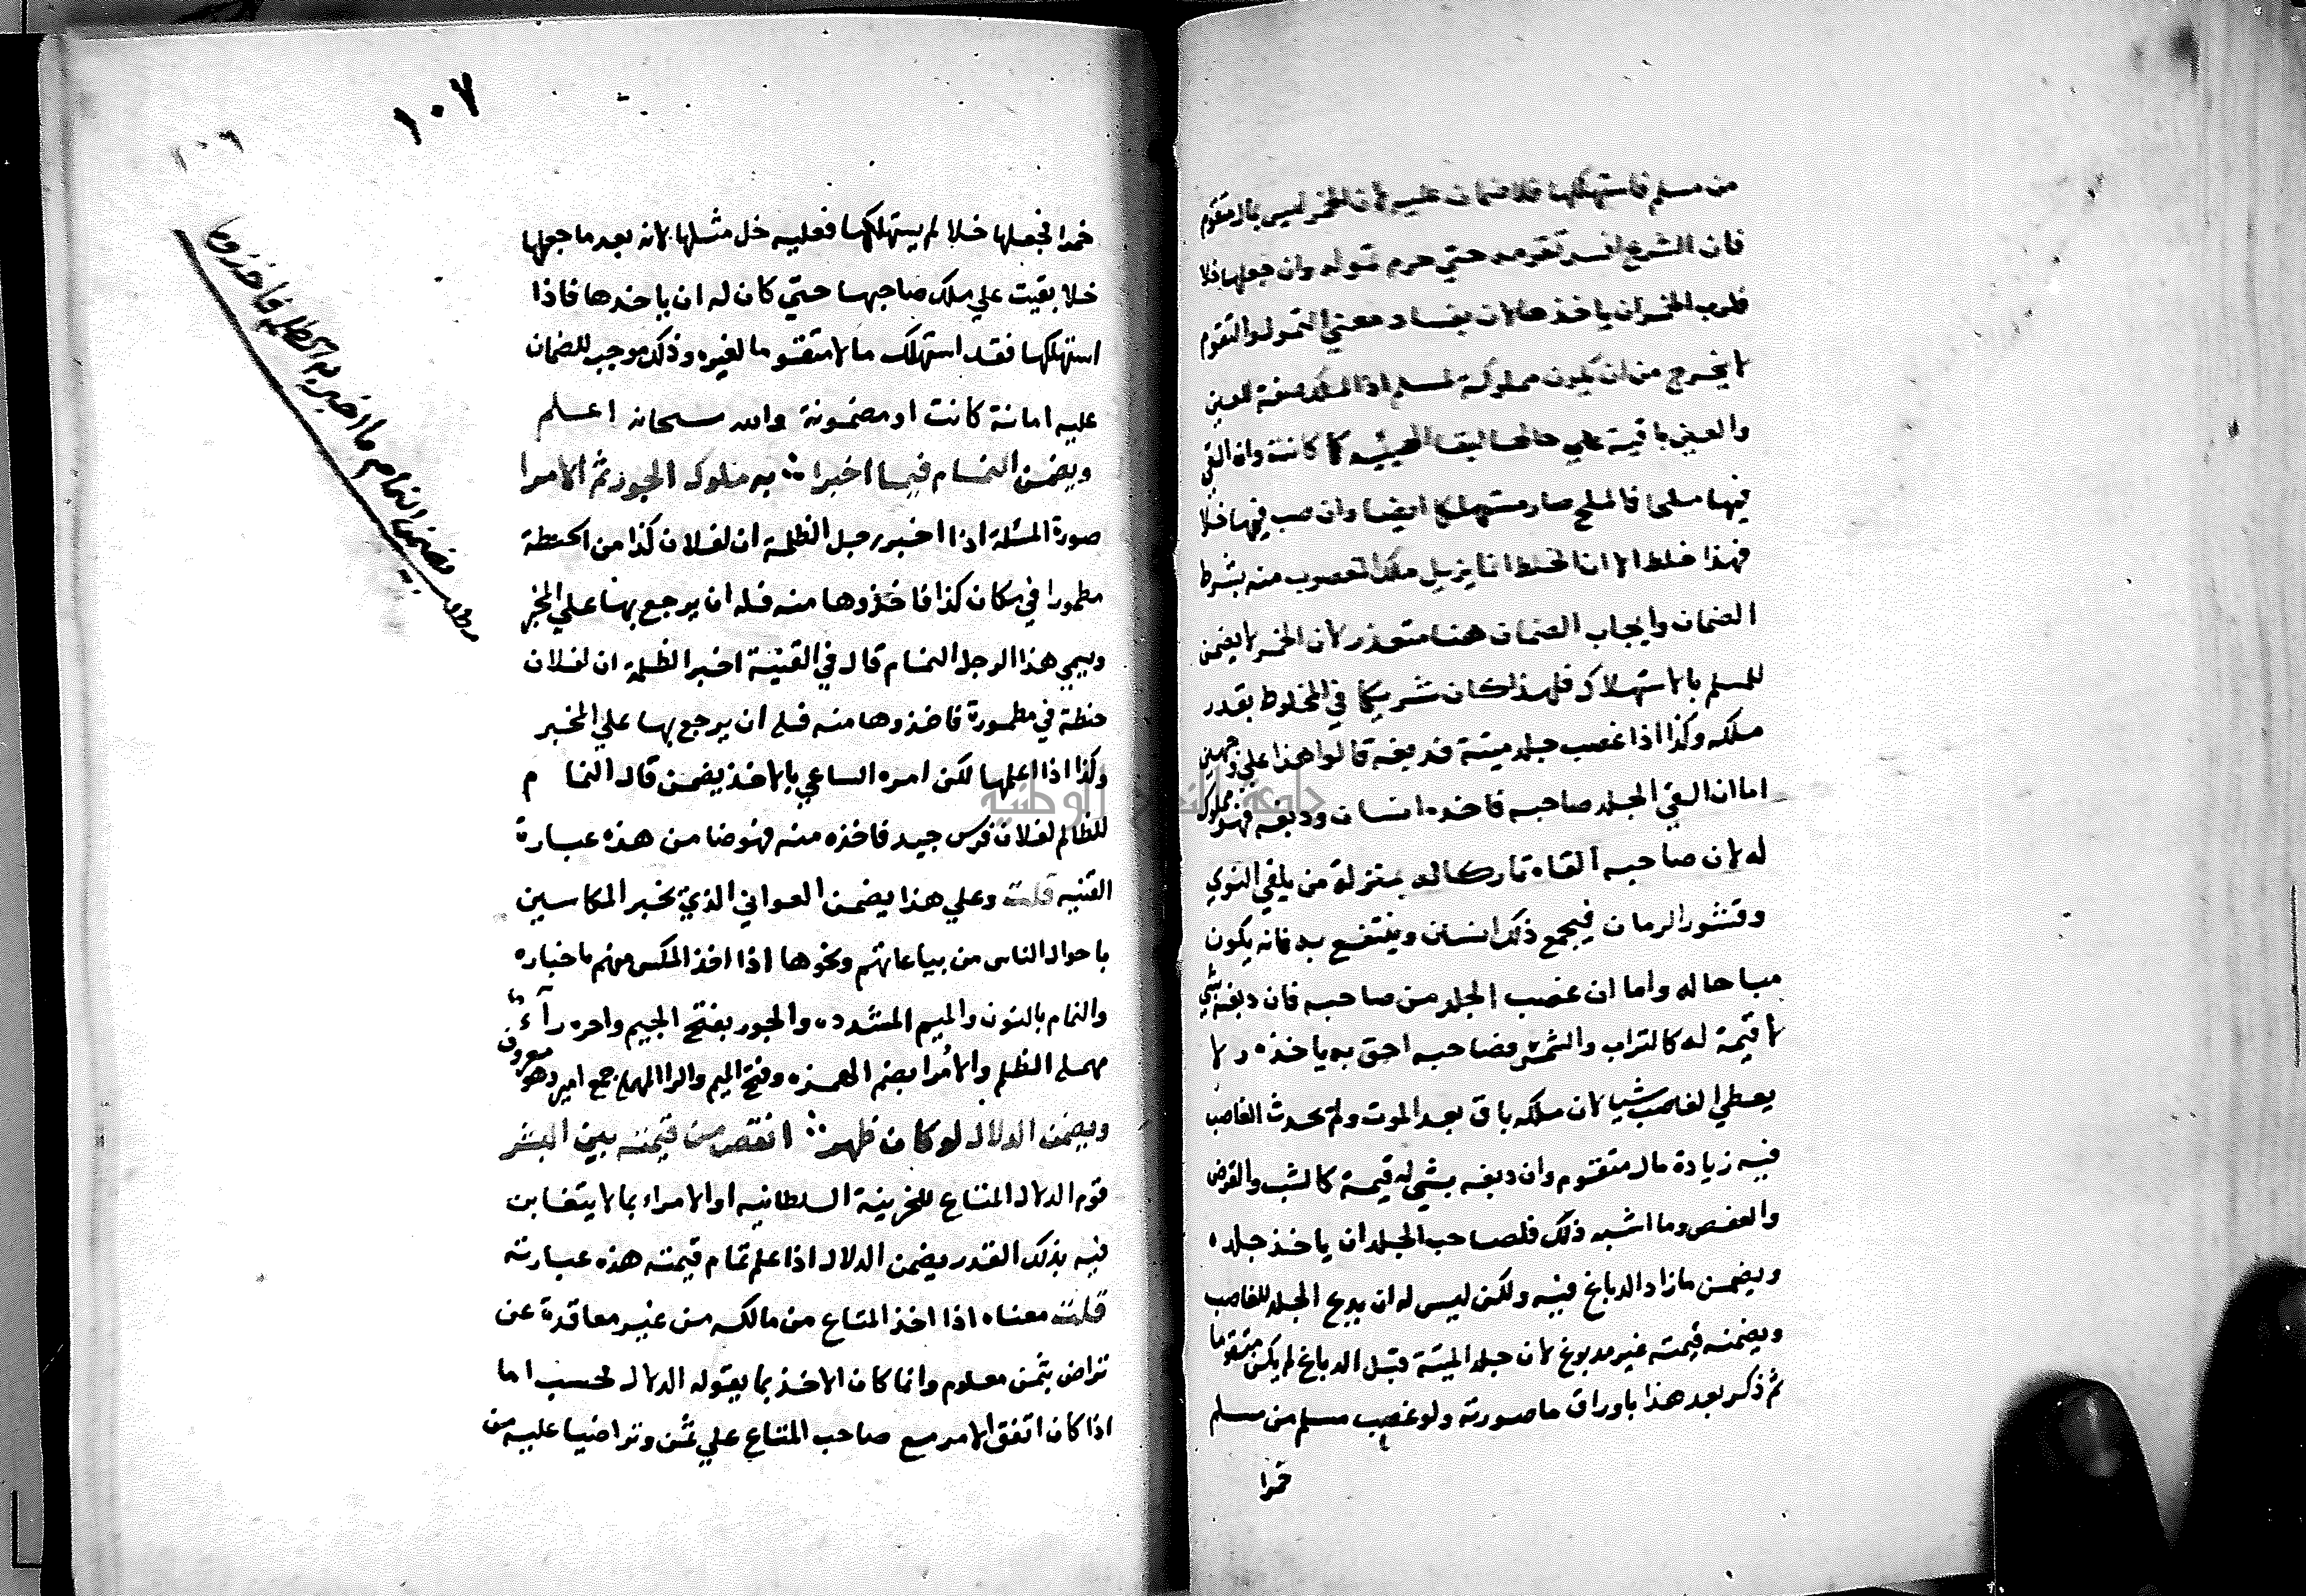 من مسلم فاستهلكها فلا ضمان عليه لان الخمر ليس بمال متقوم
فان الشرع افسد تقومه حتي حرم تموله وان جعلها خلا
فلرب الخمر ان ياخذها لان بفساد معني التمول والتقوم
لا يخرج من ان يكون مملوكة لمسلم اذ الملك صفة للعين
والعين باقية علي حالها لبقا الهيئة كما كانت وان القي
فيها ملحا فالملح صار مستهلكا ايضا وان صب فيها خلا
فهذا خلط الا ان الخلط انما يزيل ملك المغصوب منه بشرط
الضمان وايجاب الضمان هنا متعذر لان الخمر لا يضمن
للمسلم بالاستهلاك فلهذا كان شريكا في المخلوط بقدر
ملكه وكذا اذا غصب جلد ميتة فدبغه قالوا هذا علي وجهين
اما ان القي الجلد صاحبه فاخذه انسان ودبغه فهو مملوك
له لان صاحبه القاه تاركا له بمنزلة من يلقي النوي
وقشور الرمان فيجمع ذلك انسان وينتفع به فانه يكون
مباحا له واما ان غصب الجلد من صاحبه فان دبغه بشي
لا قيمة له كالتراب والشمس فصاحبه احق به ياخذه ولا
يعطي الغاصب شيا لان ملكه باق بعد الموت ولم يحدث الغاصب
فيه زيادة مال متقوم وان دبغه بشي له قيمة كالشب والقرض
والعفص وما اشبه ذلك فلصاحب الجلد ان ياخذ جلده
ويضمن مازاد الدباغ فيه ولكن ليس له ان يدع الجلد للغاصب
ويضمنه قيمته غير مدبوغ لان جلد الميتة قبل الدباغ لم يكن متقوما
ثم ذكر بعد هذا باوراق ما صورته ولو غصب مسلم من مسلم
خمرا
١٠٧
١٠٦
خمرا فجعلها خلا ثم يستهلكها فعليه خل مثلها لانه بعد ما جعلها
خلا بقيت علي ملك صاحبها حتي كان له ان ياخذها فاذا
استهلكها فقد استهلك مالا متقوما لغيره وذلك موجب للضمان
عليه امانة كانت او مضمونة والله سبحانه اعلم
ويضمن النمام فيما اخبرا ∴ به ملوك الجور ثم الامرا
صورة المسئلة اذا اخبر رجل الظلمة ان لفلان كذا من الحنطة
مطمورا في مكان كذا فاخذوها منه فله ان يرجع بها علي المخبر
ويسمي هذا الرجل النمام قال في القنية اخبر الظلمة ان لفلان
حنطة في مطمورة فاخذوها منه فله ان يرجع بها علي المخبر
وكذا اذا اعلمها لكن امره الساعي بالاخذ يضمن قال النمام
للظالم لفلان فرس جيد فاخذه منه فهو ضامن هذه عبارة
القنيه قلت وعلي هذا يضمن العواني الذي يخبر المكاسين
باحوال الناس من بياعاتهم ونحوها اذا اخذ المكس منهم باخباره
والنمام بالنون والميم المشدده والجور بفتح الجيم واخره رآء
مهملة الظلم والامرا بضم الهمزه وفتح الميم والرا المهملة جمع امير وهو معروف
ويضمن الدلال لو كان ظهر ∴ انقص من قيمته بين البشر
قوم الدلال المتاع للخزينة السلطانيه او الامراء بما لا يتغابن
فيه بذلك القدر يضمن الدلال اذا علم تمام قيمته هذه عبارته
قلت معناه اذا اخذ المتاع من مالكه من غير معاقدة عن
تراض بثمن معلوم وانما كان الاخذ بما يقوله الدلال فحسب اما
اذا كان اتفق الامر مع صاحب المتاع علي ثمن وتراضيا عليه من
يضمن النمام ما اخبر به الظلمة فاخذوها